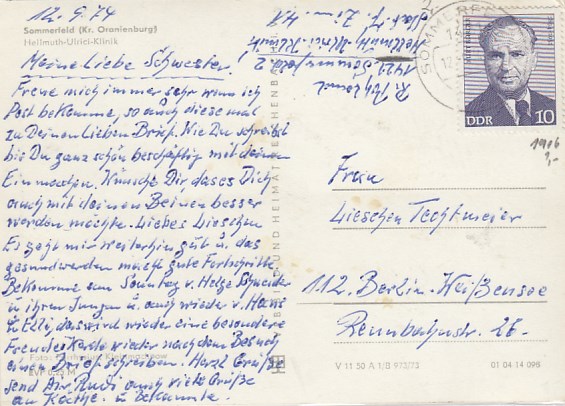 12.9.74
Sommerfeld (Kr. Oranienburg)
Hellmuth-Ulrici-Klinik
Meine Liebe Schwester!
Freue mich immer sehr wenn ich
Post bekomme, so auch diese mal
zu Deinen Lieben Brief. Wie Du schreibst
bis Du ganz schön beschäftig mit deinen
Einmachen. Wünsche Dir dases Dich
auch mit deinen Beinen besser
werden möchte. Liebes Lieschen
Es geht mir weiterhin gut u. das
gesundwerden macht gute Fortschritte
Bekomme am Sonntag v. Helga Schneider
u ihren Jungen u. auch wieder v. Hans
u. Elli, das wird wieder eine besondere
Freude. Werde wieder nach dem Besuch
einen Brief schreiben. Herzl Grüße
send Dir Rudi auch viele Grüße
an Käthe u. bekannte.
EVP 0,25 M
R.
1421 Sommerfeld 2
Hellmuth Ulrici Klinik
SOMMERFELD
DDR 10
1906
1,-
Frau
Lieschen Techtmeier
112. Berlin-Weißensee
Rennbahnstr. 28.
V 11 50 A 1/B 973/73
01 04 14 098